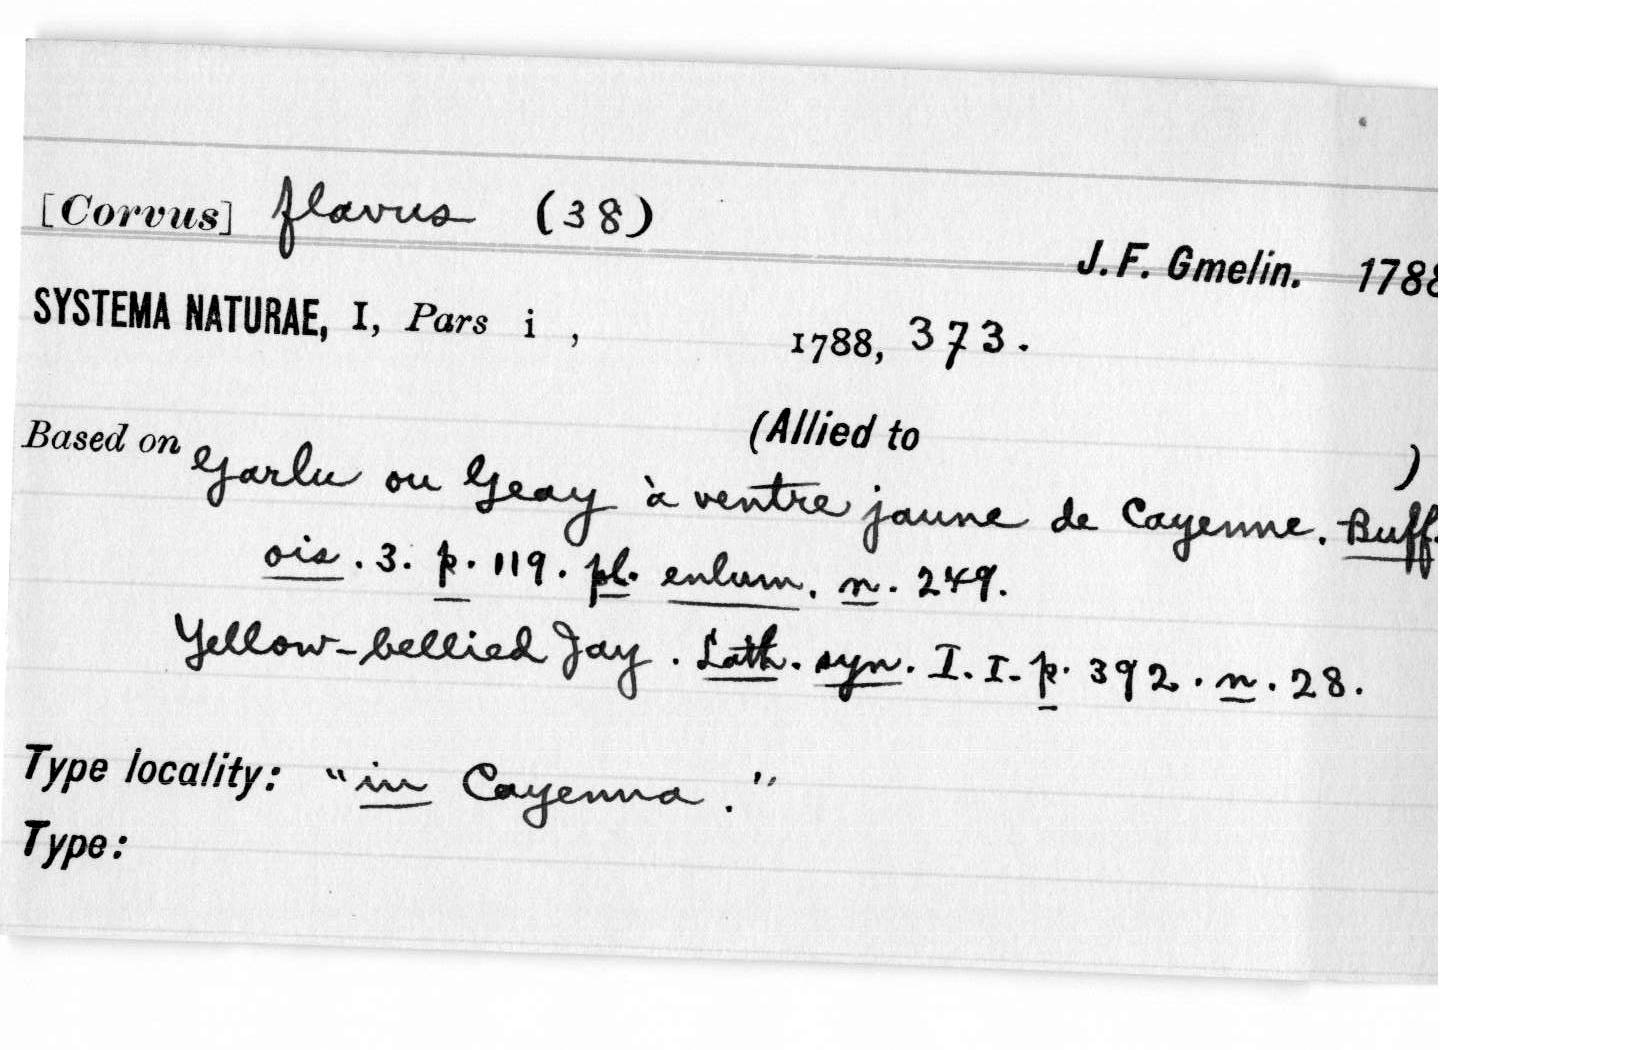 [Corvus] flavus (38)
J. F. Gmelin. 1788
SYSTEMA NATURAE, I, Pars i , 1788, 373.
(Allied to )
Based on Garlu ou Geay à ventre jaune de Cayenne. Buff.
ois. 3. p. 119. pl. enlum. n. 249.
Yellow-bellied Jay. Lath. syn. I. I. p. 392. n. 28.
Type locality: "in Cayenna."
Type: